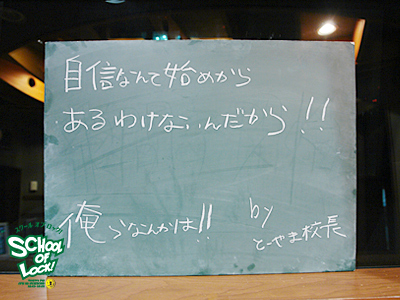 自信なんて始めから
あるわけないんだから!!
俺らなんかは!!
by
とーやま校長
スクール オブ ロック!
SCHOOL
OF
LOCK!